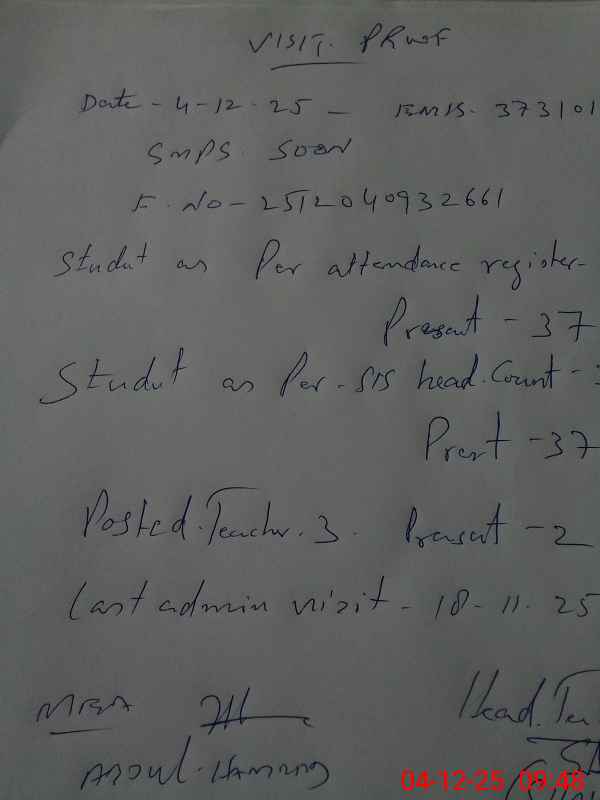 VISIT. PROOF
Date - 4-12-25 - EMIS- 373101
GMPS. SOON
F. No - 2512040932661
Studut as Per attendance register-
Present - 37
Studut as Per. SIS head. Count -
Prest - 37
Posted. Teacher. 3. Present - 2
last admin visit - 18-11-25
MEA
Head.
ABDUL.
04-12-25 09:48